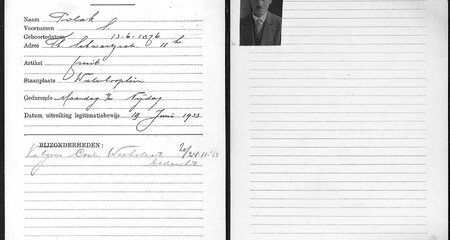 Naam Polak
Voornamen S.
Geboortedatum 13.6.1876
Adres 11
Artikel fruit
Staanplaats Waterlooplein
Gedurende Maandag t/m Vrijdag
Datum uitreiking legitimatiebewijs 19 Juni 1933
BIJZONDERHEDEN:
Volgens